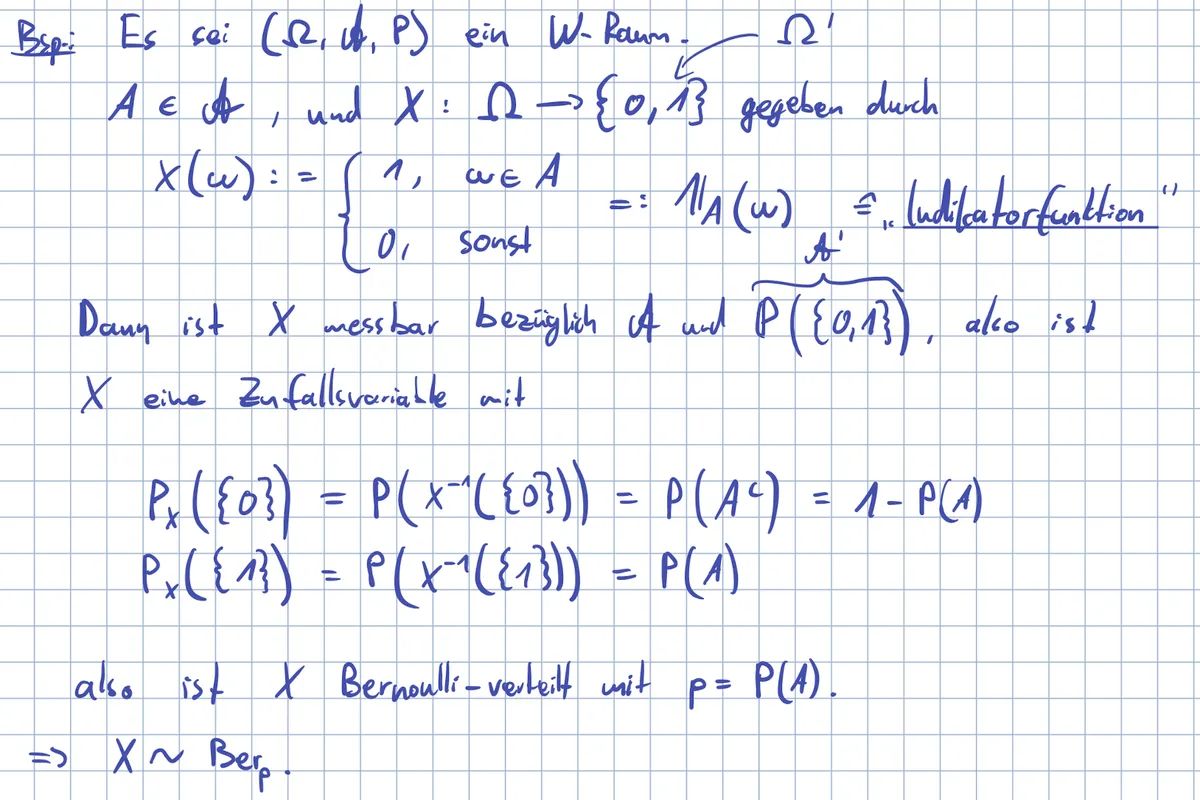 Bsp.: Es sei (Ω, 𝒜, P) ein W-Raum. Ω'
A ∈ 𝒜, und X : Ω → {0,1} gegeben durch
X(ω) := { 1, ω ∈ A =: 𝟙_A(ω) ≙ „Indikatorfunktion"
0, sonst
𝒜'
Dann ist X messbar bezüglich 𝒜 und P({0,1}), also ist
X eine Zufallsvariable mit
P_X({0}) = P(X⁻¹({0})) = P(Aᶜ) = 1 - P(A)
P_X({1}) = P(X⁻¹({1})) = P(A)
also ist X Bernoulli-verteilt mit p = P(A).
=> X ~ Ber_p.